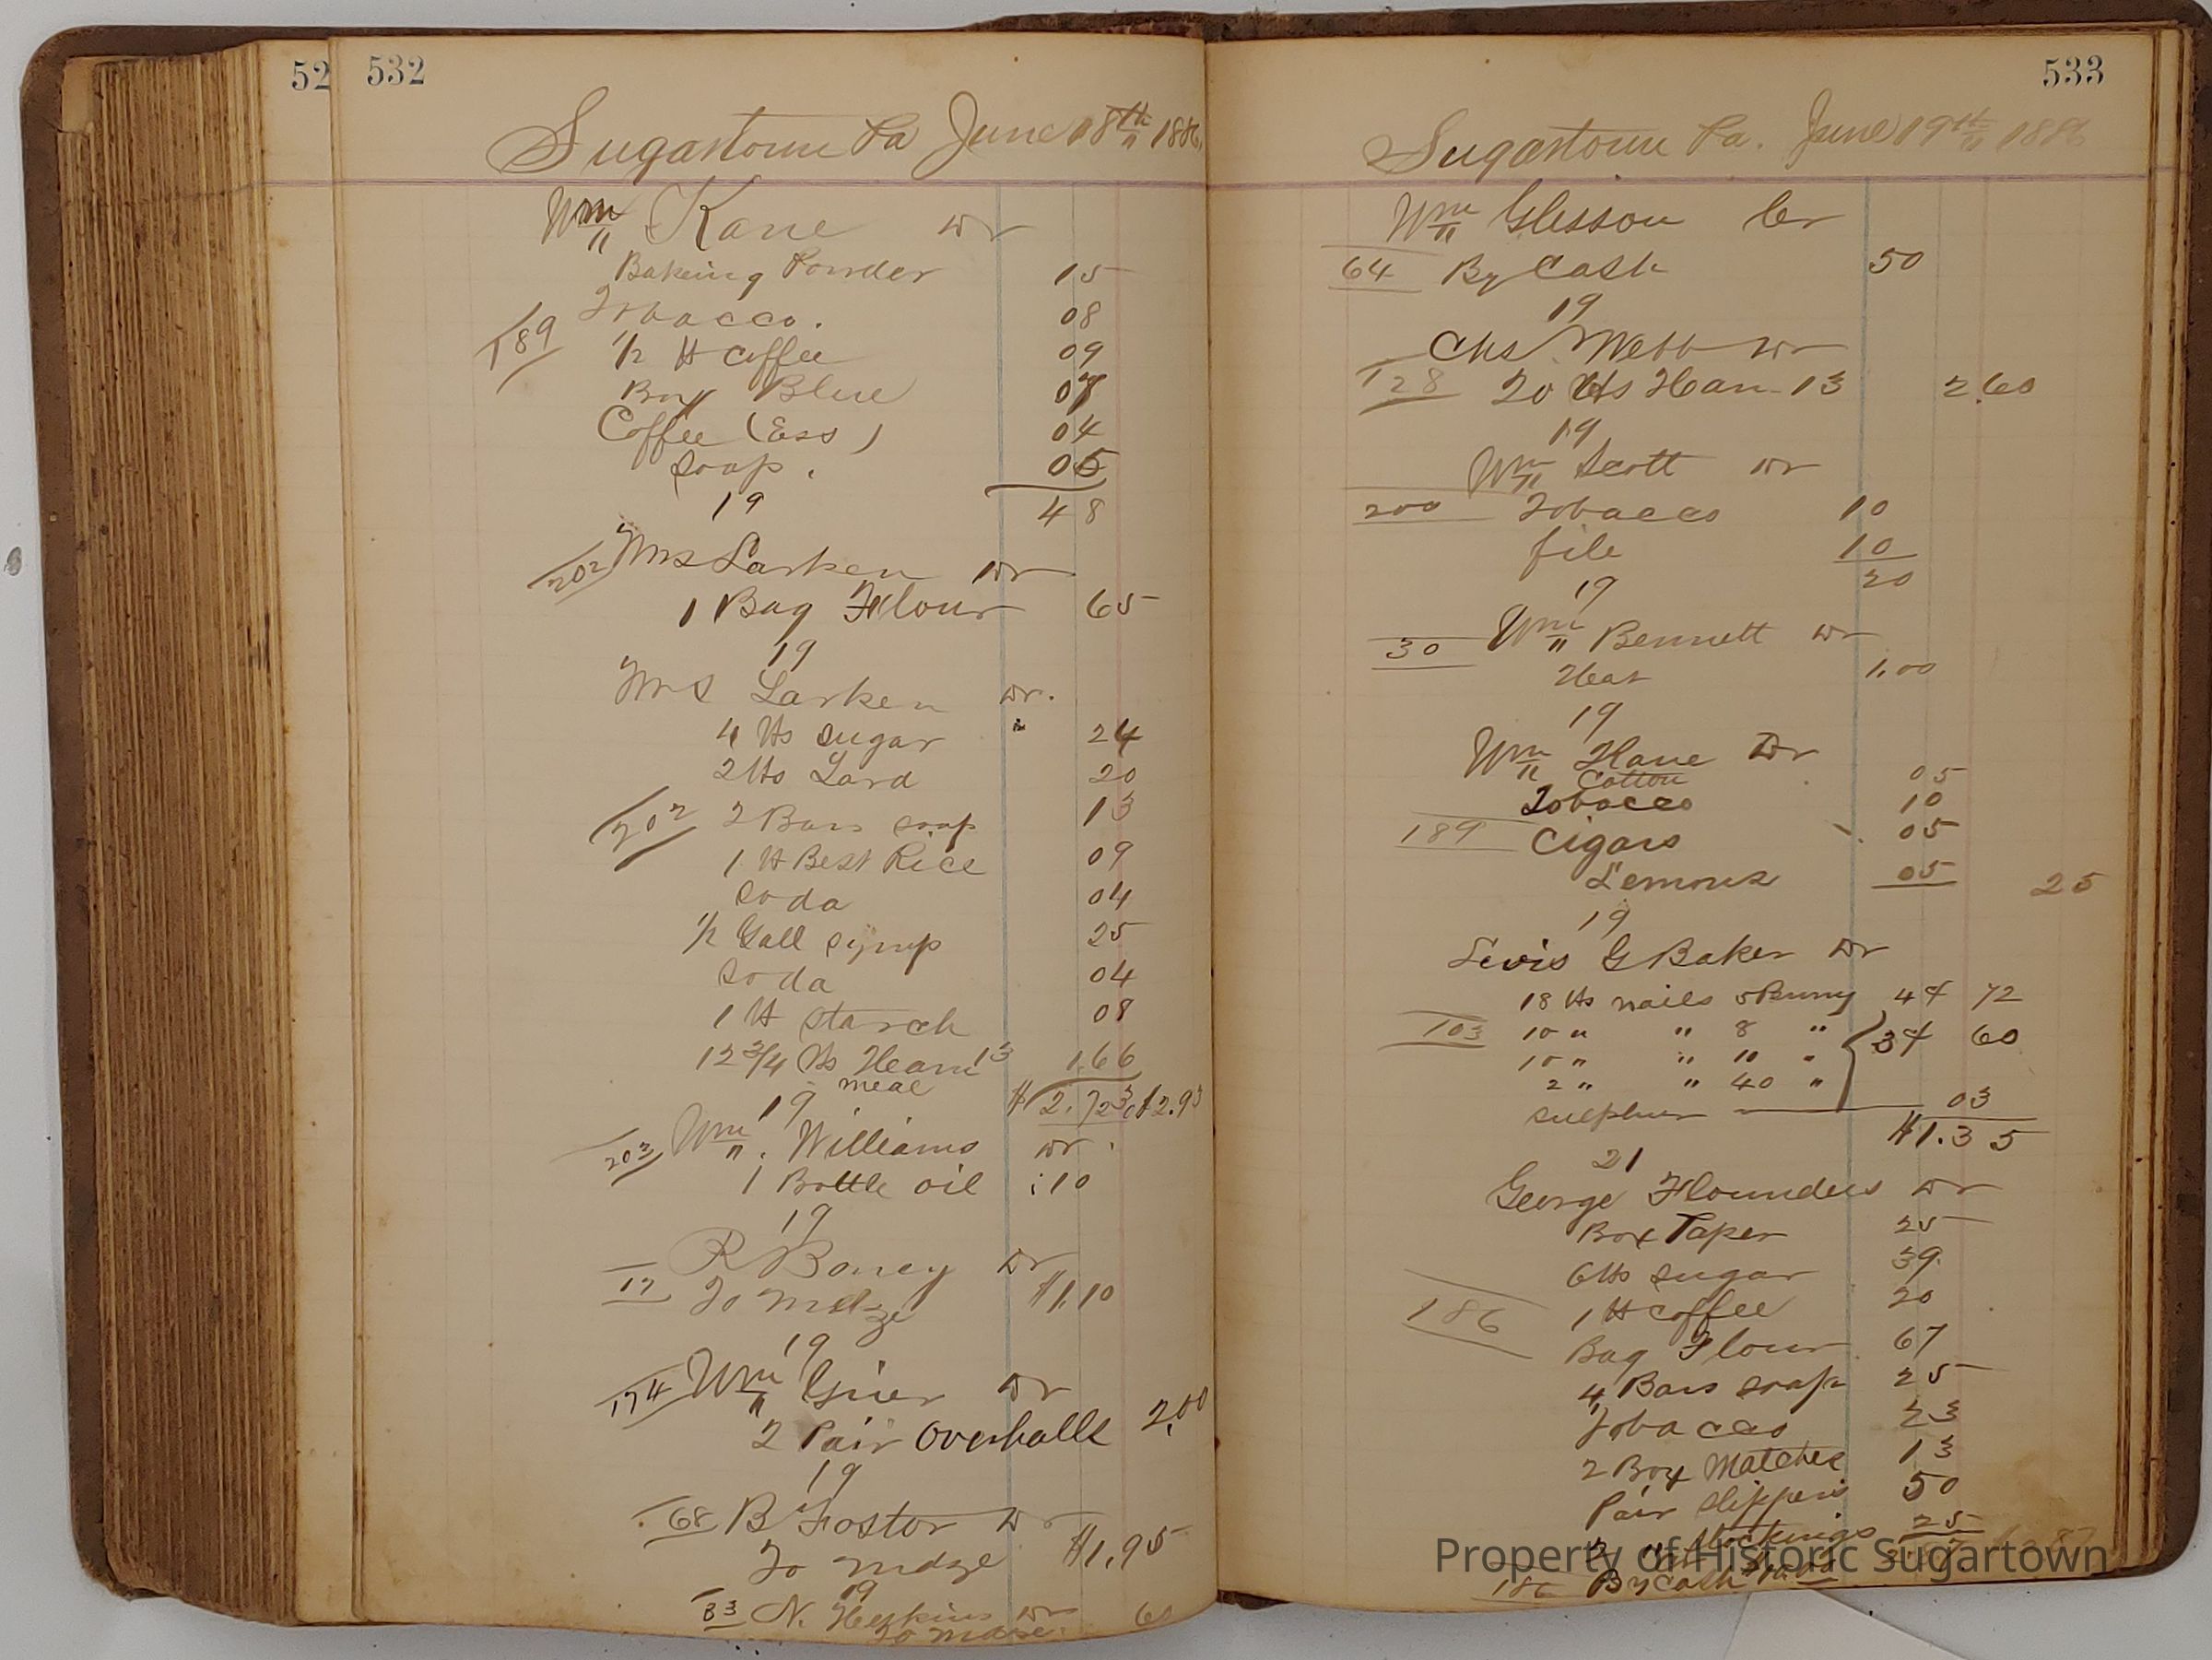 52 532
Sugartown Pa June 18th 1886
Wm Kane Dr
Baking Powder 15
Tobacco. 08
189 1/2 lb Coffee 09
Box Blue 07
Coffee (Ess) 04
Soap. 05
19 48
202 Mrs Larken Dr
1 Bag Flour 65
19
Mrs Larken Dr.
4 lbs sugar 24
2 lbs Lard 20
202 2 Bars soap 13
1 lb Best Rice 09
Soda 04
1/2 Gall syrup 25
Soda 04
1 lb starch 08
12 3/4 lbs Ham 13 1.66
meal
19 $2.73
203 Wm. Williams Dr
1 Bottle oil 10
19
R Boney Dr
17 To Mdze $1.10
19
174 Wm Grier Dr
2 Pair Overhalls 2.00
19
68 B Foster Dr
To Mdze $1.95
19
33 N. Dr
To Mdse 60
533
Sugartown Pa. June 19th 1886
Wm Glisson Cr
64 By Cash 50
19
Chs Webb Dr
128 20 lbs Ham 13 2.60
19
Wm Scott Dr
200 Tobacco 10
file 10
20
19
30 Wm Bennett Dr
1.00
19
Wm Kane Dr
Cotton 05
Tobacco 10
189 Cigars 05
Lemons 05 25
19
Levis G Baker Dr
18 lbs nails 5 Penny 4¢ 72
103 10 " " 8 " 3¢ 60
10 " " 10 "
2 " " 40 "
Sulphur 03
$1.35
21
George Flounders Dr
Box Paper 25
6 lbs sugar 39
186 1 lb coffee 20
Bag Flour 67
4 Bars soap 25
Tobacco 23
2 Box Matches 13
Pair slippers 50
2 " stockings 25
186 By Cash
Property of Historic Sugartown